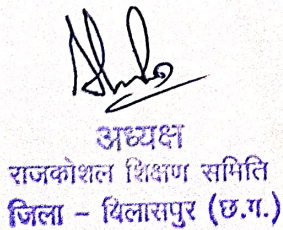 अध्यक्ष
राजकोशल शिक्षण समिति
जिला – बिलासपुर (छ.ग.)